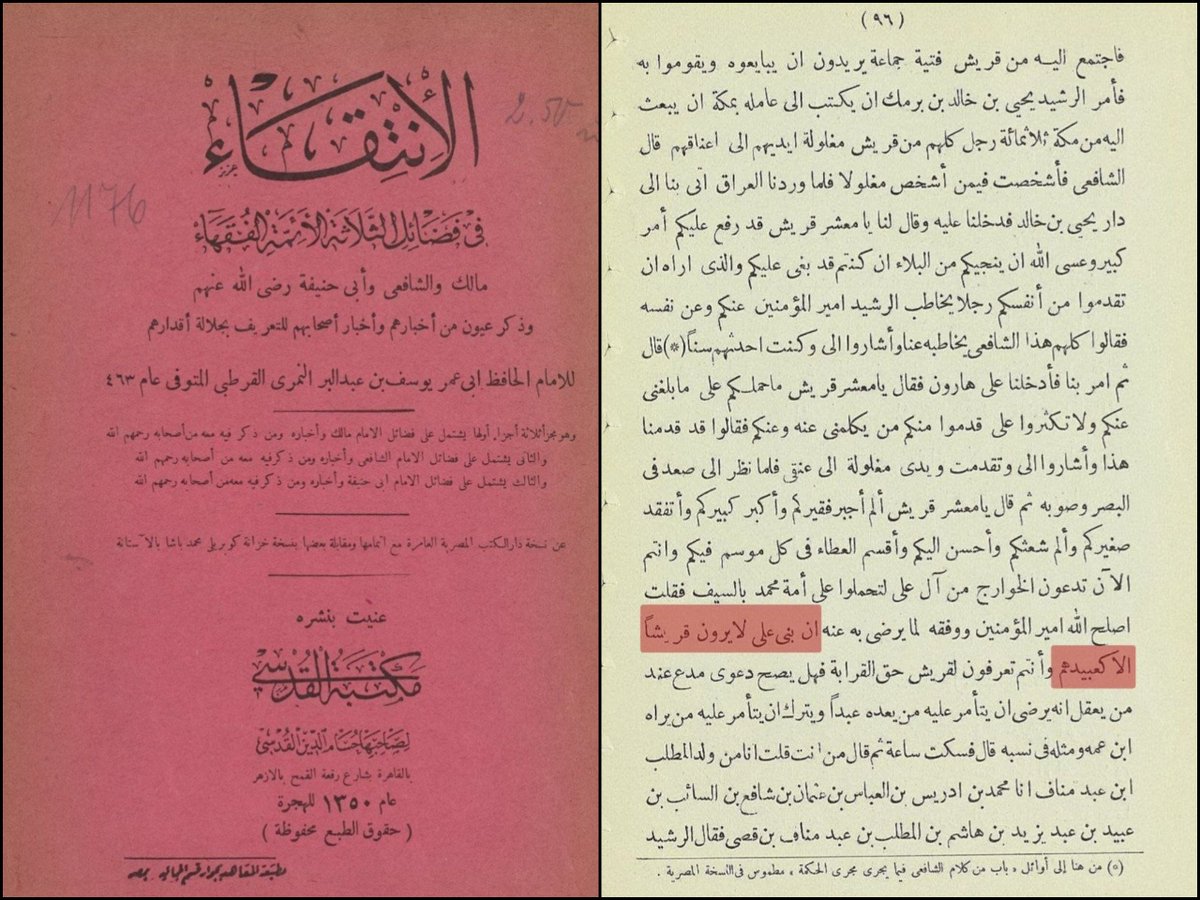 الانتقاء
عزيز
في فضائل الثلاثة الأئمة الفقهاء
مالك والشافعي وأبي حنيفة رضى الله عنهم
وذكر عيون من أخبارهم وأخبار أصحابهم للتعريف بجلالة أقدارهم
للامام الحافظ ابى عمر يوسف بن عبدالبر النمرى القرطبى المتوفى عام ٤٦٣
وهو مجزأ ثلاثة أجزاء. أولها يشتمل على فضائل الامام مالك وأخباره ومن ذكر فيه معه من أصحابه رحمهم الله
والثانى يشتمل على فضائل الامام الشافعى وأخباره ومن ذكر فيه معه من أصحابه رحمهم الله
والثالث يشتمل على فضائل الامام ابى حنيفة وأخباره ومن ذكر فيه معه من أصحابه رحمهم الله
عن نسخة دار الكتب المصرية العامرة مع اتمامها ومقابلة بعضها بنسخة خزانة كوبريلى محمد باشا بالآستانة
عنيت بنشره
مكتبة القدسي
لصاحبها حسام الدين القدسي
بالقاهرة بشارع رفعة القمح بالازهر
عام ١٣٥٠ للهجرة
( حقوق الطبع محفوظة )
1176
2.50
(٩٦)
فاجتمع اليه من قريش فتية جماعة يريدون ان يبايعوه ويقوموا به
فأمر الرشيد يحيى بن خالد بن برمك ان يكتب الى عامله بمكة ان يبعث
اليه من مكة ثلاثمائة رجل كلهم من قريش مغلولة ايديهم الى اعناقهم قال
الشافعى فأشخصت فيمن أشخص مغلولا فلما وردنا العراق اتى بنا الى
دار يحيى بن خالد فدخلنا عليه وقال لنا يامعشر قريش قد رفع عليكم أمر
كبير وعسى الله ان ينجيكم من البلاء ان كنتم قد بغى عليكم والذى اراه ان
تقدموا من أنفسكم رجلا يخاطب الرشيد امير المؤمنين عنكم وعن نفسه
فقالوا كلهم هذا الشافعى يخاطبه عنا وأشاروا الى وكنت احدثهم سناً(*)قال
ثم امر بنا فأدخلنا على هارون فقال يامعشر قريش ماحملكم على مابلغنى
عنكم ولا تكثروا على قدموا منكم من يكلمنى عنه وعنكم فقالوا قد قدمنا
هذا وأشاروا الى وتقدمت ويدى مغلولة الى عنقى فلما نظر الى صعد فى
البصر وصوبه ثم قال يامعشر قريش ألم أجبر فقيركم وأكبر كبيركم وأتفقد
صغيركم وألم شعثكم وأحسن اليكم وأقسم العطاء فى كل موسم فيكم وانتم
الآن تدعون الخوارج من آل على لتحملوا على أمة محمد بالسيف فقلت
اصلح الله امير المؤمنين ووفقه لما يرضى به عنه ان بنى على لا يرون قريشاً
الا كعبيدهم وأنتم تعرفون لقريش حق القرابة فهل يصح دعوى مدع عند
من يعقل انه يرضى ان يتأمر عليه من يعده عبداً ويترك ان يتأمر عليه من يراه
ابن عمه ومثله فى نسبه قال فسكت ساعة ثم قال من انت قلت انا من ولد المطلب
ابن عبد مناف انا محمد بن ادريس بن العباس بن عثمان بن شافع بن السائب بن
عبيد بن عبد يزيد بن هاشم بن المطلب بن عبد مناف بن قصى فقال الرشيد
(*) من هنا إلى أوائل « باب من كلام الشافعى فيما يجرى مجرى الحكمة » مطموس فى النسخة المصرية .